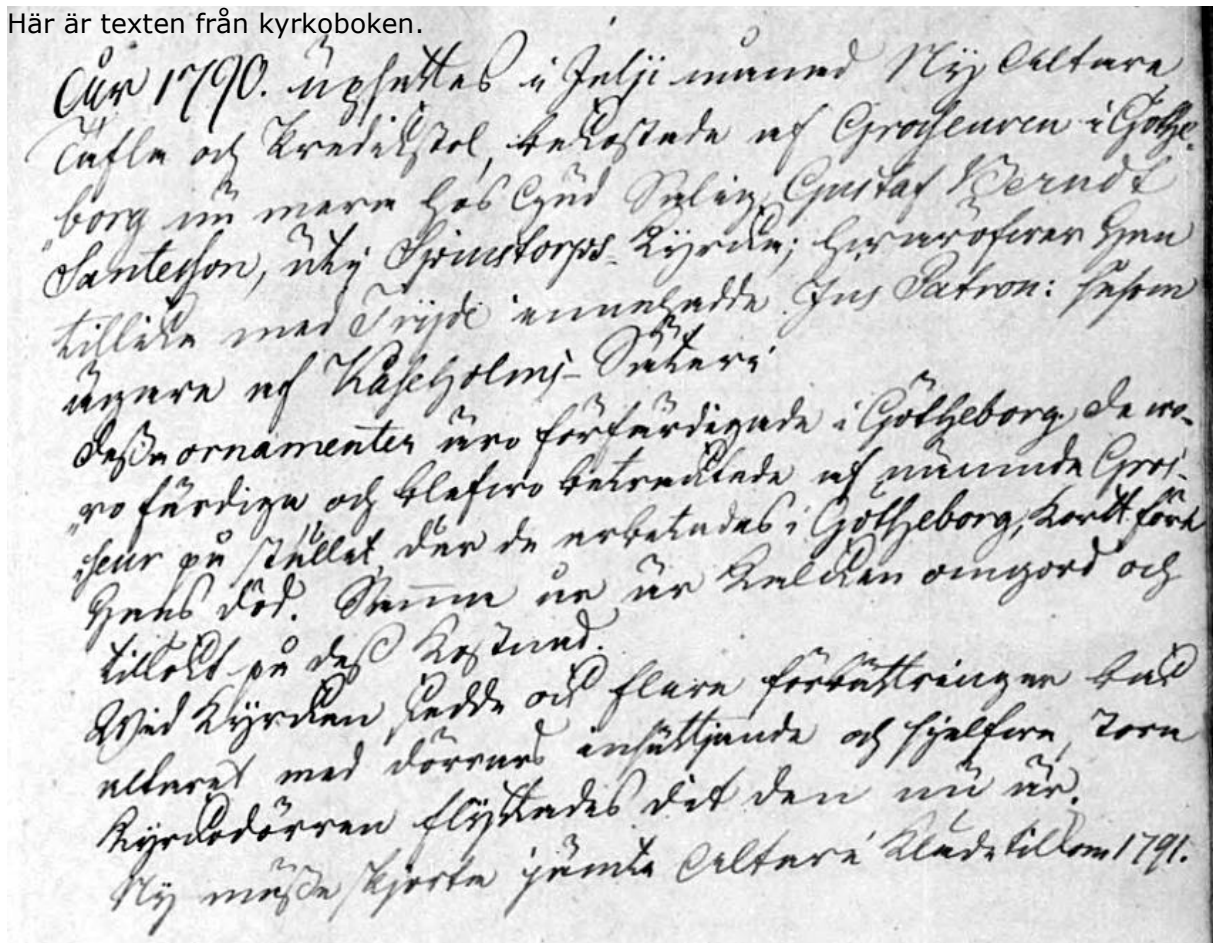 Här är texten från kyrkoboken.
Åhr 1790. upsattes i Julji månad Ny Altare
Tafla och Predikstol, bekostade af Grosheuren i Göthe-
„borg nu mera hos Gud Salig Gustaf Berndt
Santesson, uti Sjönstorps Kyrcka; hvaröfver Han
tillika med Fryde innehadde Jus Patron: såsom
ägare af Kåseholms Säteri
Dessa ornamenter äro förfärdigade i Götheborg. De wo-
„ro färdiga och blefwo betracktade af nämnde Gros-
„heur på stället der de arbetades i Götheborg, kort före
Hans död. Samma år är Kalcken omgord och
tillökt på dess Kostnad.
Wid Kyrckan skedde ock flera förbättringar bak
altaret med dörrars insättjande och sjelfwa Torn
Kyrckodörren flyttades dit den nu är.
Ny mässe skjorta jämte Altare Kläde tillkom 1791.